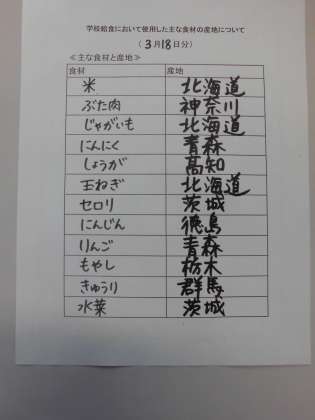 学校給食において使用した主な食材の産地について
（3月18日分）
≪主な食材と産地≫
食材 産地
米 北海道
ぶた肉 神奈川
じゃがいも 北海道
にんにく 青森
しょうが 高知
玉ねぎ 北海道
セロリ 茨城
にんじん 徳島
りんご 青森
もやし 栃木
きゅうり 群馬
水菜 茨城